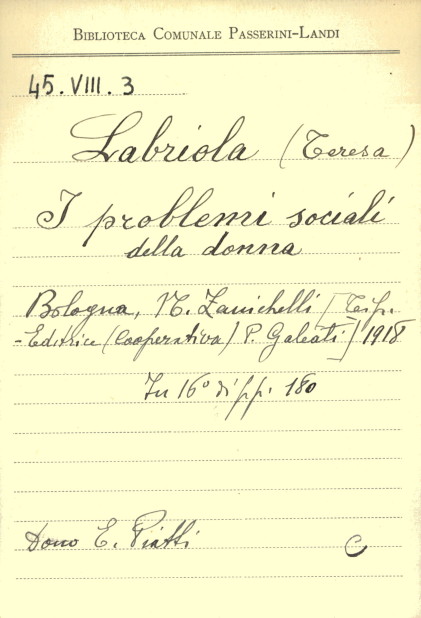 BIBLIOTECA COMUNALE PASSERINI-LANDI
45.VIII.3
Labriola (Teresa)
I problemi sociali
della donna
Bologna, N. Zanichelli [Tip.
-Editrice (Cooperativa) P. Galeati] 1918
In 16° di pp. 180
Dono E. Piatti
C